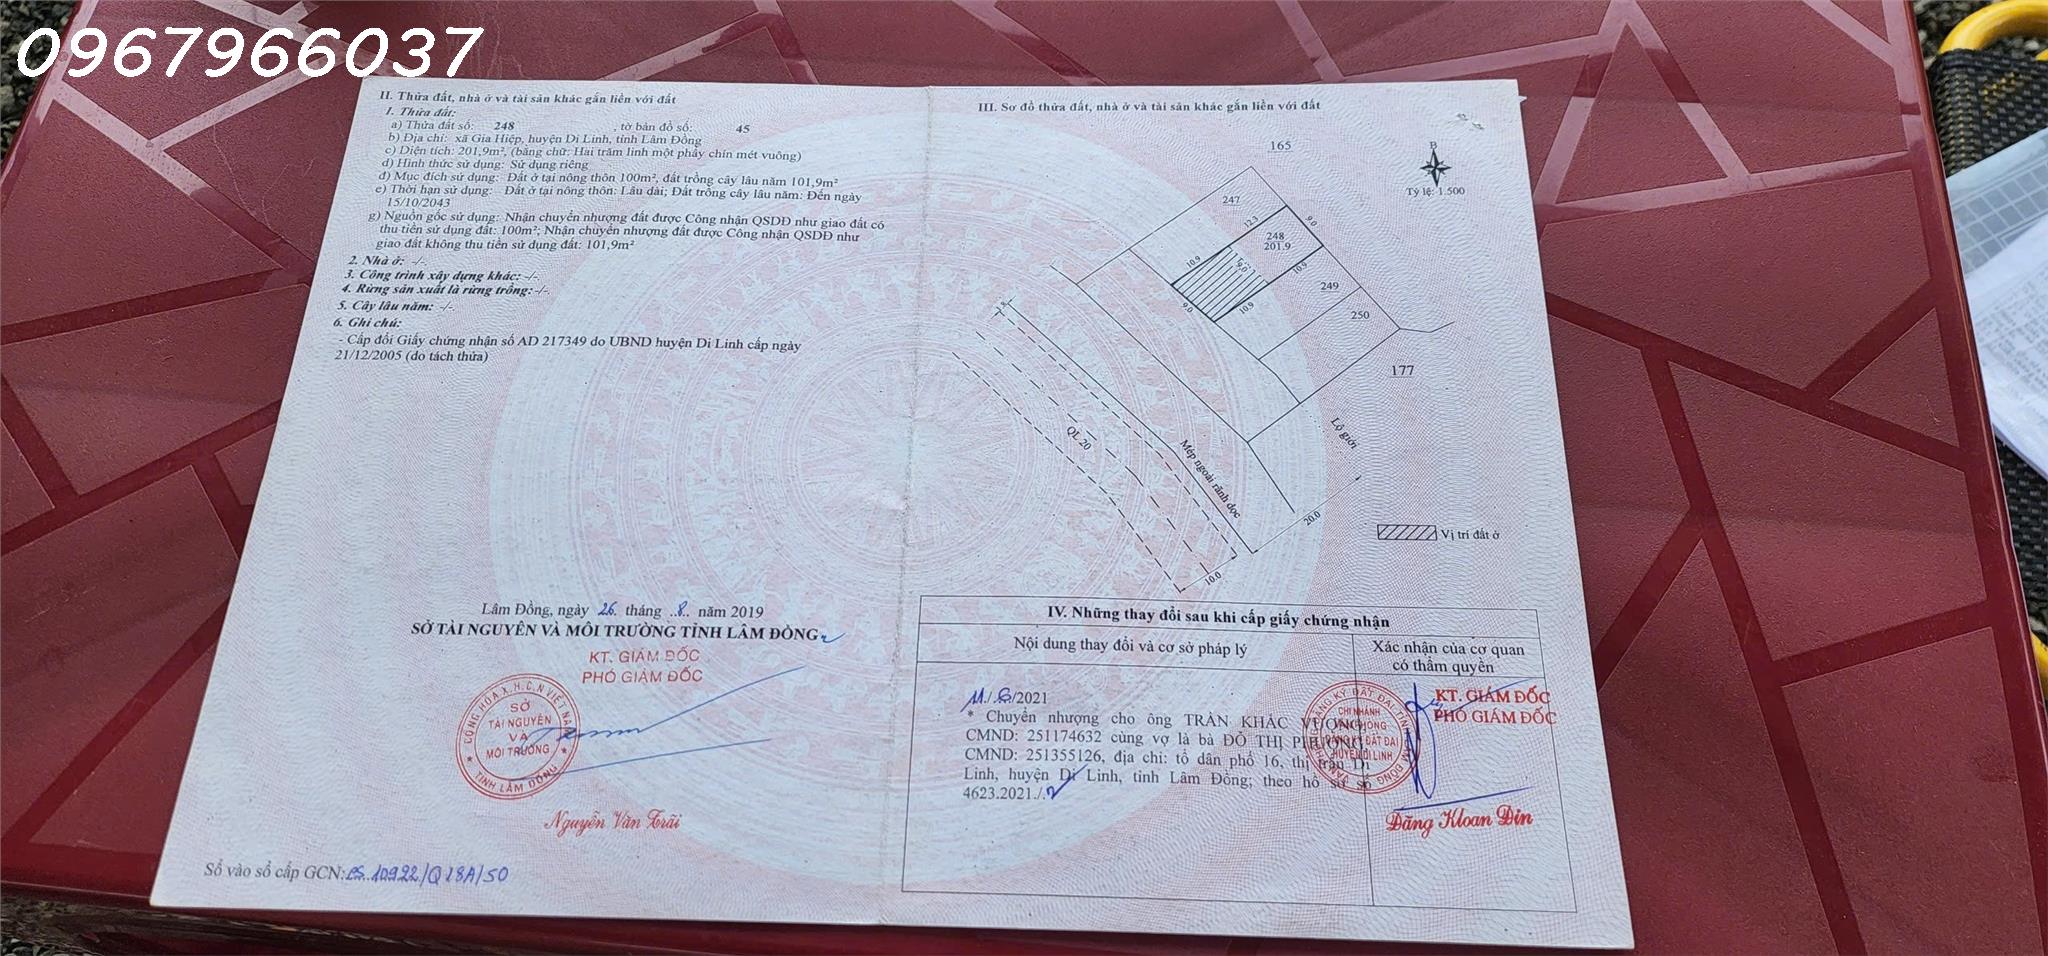 0967966037
II. Thửa đất, nhà ở và tài sản khác gắn liền với đất
1. Thửa đất:
a) Thửa đất số: 248 , tờ bản đồ số: 45
b) Địa chỉ: xã Gia Hiệp, huyện Di Linh, tỉnh Lâm Đồng
c) Diện tích: 201,9m², (bằng chữ: Hai trăm linh một phẩy chín mét vuông)
d) Hình thức sử dụng: Sử dụng riêng
đ) Mục đích sử dụng: Đất ở tại nông thôn 100m², đất trồng cây lâu năm 101,9m²
e) Thời hạn sử dụng: Đất ở tại nông thôn: Lâu dài; Đất trồng cây lâu năm: Đến ngày
15/10/2043
g) Nguồn gốc sử dụng: Nhận chuyển nhượng đất được Công nhận QSDĐ như giao đất có
thu tiền sử dụng đất: 100m²; Nhận chuyển nhượng đất được Công nhận QSDĐ như
giao đất không thu tiền sử dụng đất: 101,9m²
2. Nhà ở: -/-.
3. Công trình xây dựng khác: -/-.
4. Rừng sản xuất là rừng trồng: -/-.
5. Cây lâu năm: -/-.
6. Ghi chú:
- Cấp đổi Giấy chứng nhận số AD 217349 do UBND huyện Di Linh cấp ngày
21/12/2005 (do tách thửa)
Lâm Đồng, ngày 26 tháng 8 năm 2019
SỞ TÀI NGUYÊN VÀ MÔI TRƯỜNG TỈNH LÂM ĐỒNG
KT. GIÁM ĐỐC
PHÓ GIÁM ĐỐC
CỘNG HÒA X.H.C.N VIỆT NAM
SỞ
TÀI NGUYÊN
VÀ
MÔI TRƯỜNG
TỈNH LÂM ĐỒNG
Nguyễn Văn Trãi
Số vào sổ cấp GCN: CS 10922/Q18A/50
III. Sơ đồ thửa đất, nhà ở và tài sản khác gắn liền với đất
B
Tỷ lệ: 1.500
165
247
12.3
9.0
248
201.9
10.9
9.0
10.9
249
9.0
10.9
250
177
QL 20
Mép ngoài rãnh dọc
Lộ giới
20.0
10.0
Vị trí đất ở
IV. Những thay đổi sau khi cấp giấy chứng nhận
Nội dung thay đổi và cơ sở pháp lý
Xác nhận của cơ quan
có thẩm quyền
11/6/2021
* Chuyển nhượng cho ông TRẦN KHẮC VƯƠNG
CMND: 251174632 cùng vợ là bà ĐỖ THỊ PHƯƠNG
CMND: 251355126, địa chỉ: tổ dân phố 16, thị trấn Di
Linh, huyện Di Linh, tỉnh Lâm Đồng; theo hồ sơ số
4623.2021./.
KT. GIÁM ĐỐC
PHÓ GIÁM ĐỐC
CHI NHÁNH
HUYỆN DI LINH
Đăng Kloan Đin